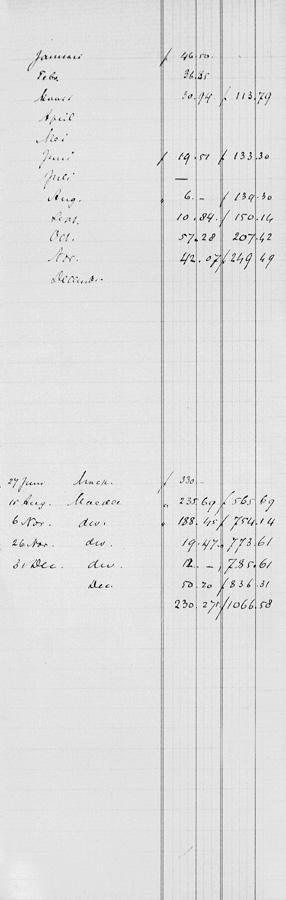 Januari f 46.50.
Febr. 36.35
Maart 30.94 f 113.79
April
Mei
Juni f 19.51 f 133.30
Juli —
Aug. " 6.- f 139.30
Sept. 10.84 f 150.14
Oct. 57.28 207.42
Nov. 42.07 f 249.49
Decembr.
27 Juni f 330 —
15 Aug. " 235.69 f 565.69
6 Nov. div. " 188.45 f 754.14
26 Nov. div. 19.47 " 773.61
31 Dec. div. 12 — , 785.61
Dec. 50.70 f 836.31
230.275 f 1066.58